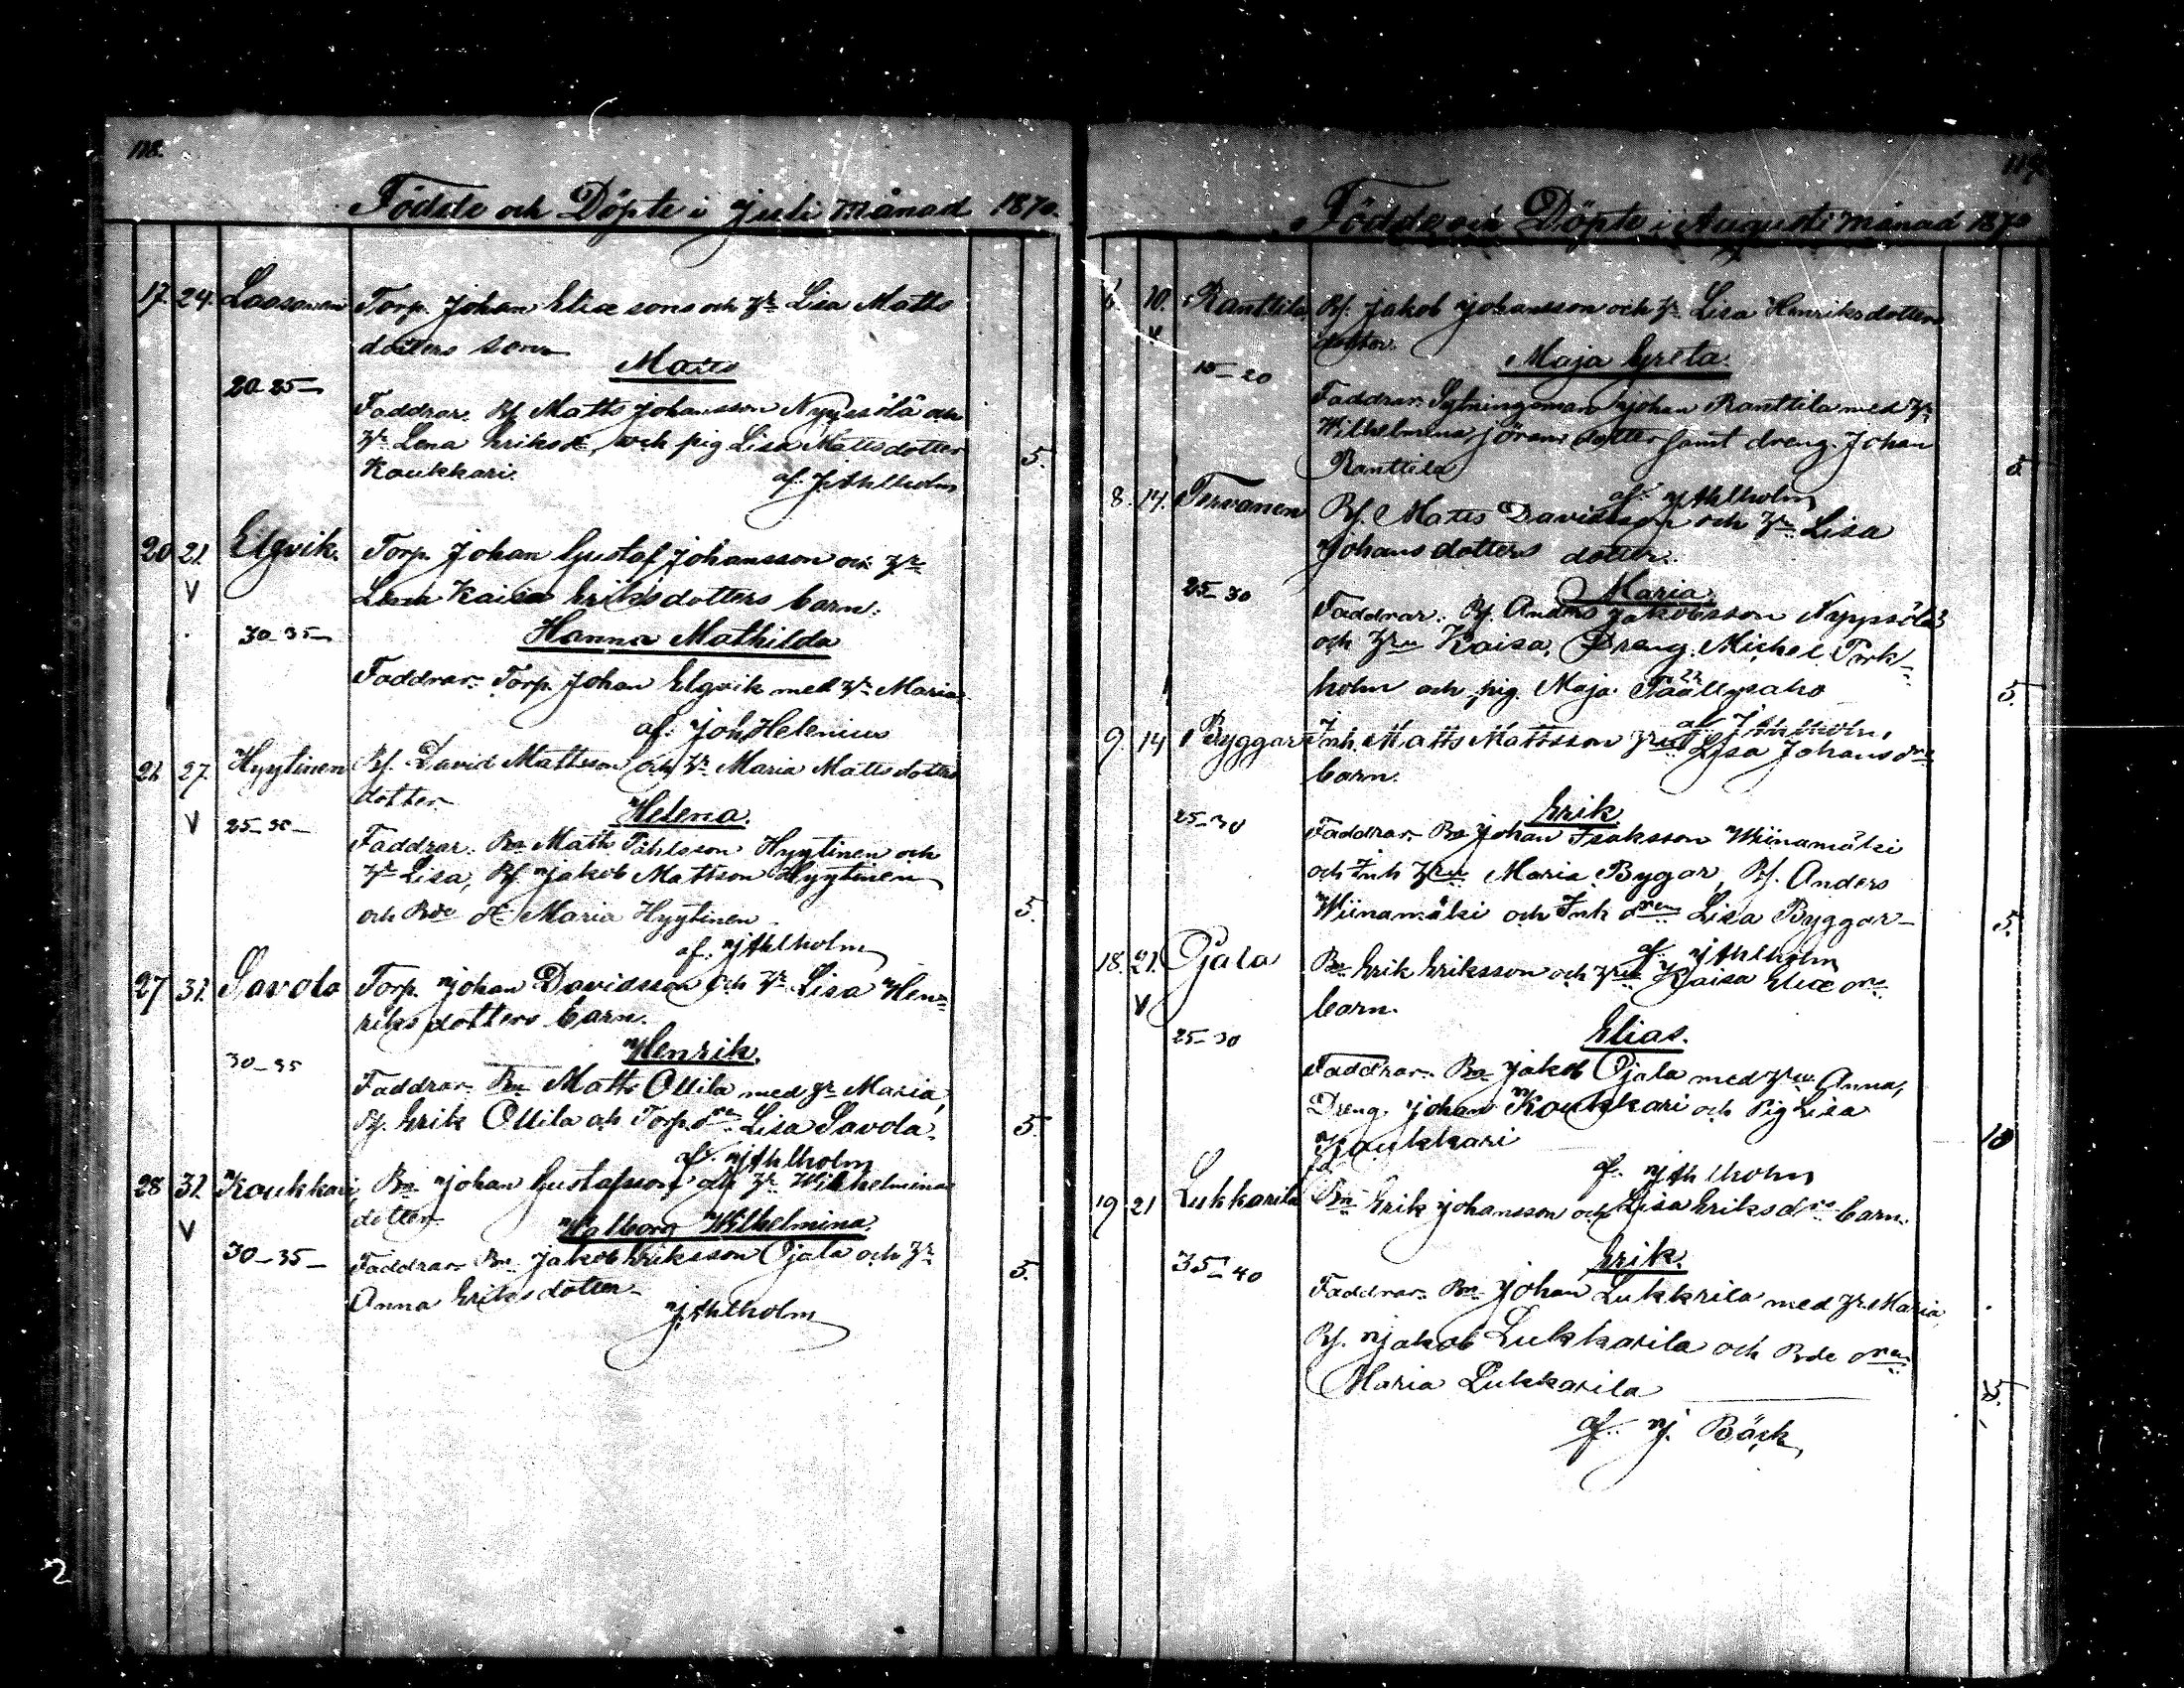 118.
Födde och Döpte i Juli Månad 1870.
17. 24. Lassanen Torp. Johan Eliæ sons och Hr Lisa Matts
dotters son
Matts
20-25-
Faddrar. Bf. Matts Johansson Nyyssölä och
Hr Lena Eriksdr, och pig Lisa Mattsdotter
Koukkari. 5.
af. J. Ahlholm
20 21. Elgvik. Torp. Johan Gustaf Johansson och Hr
V Lena Kaisa Eriksdotters barn.
30-35- Hanna Mathilda
Faddrar. Torp. Johan Elgvik med Hr Maria
af. Joh. Helenius
21. 27. Hyytinen Bf. David Mattsson och Hr Maria Mattsdotters
dotter
V 25-30- Helena.
Faddrar. Bn Matts Påhlsson Hyytinen och
Hr Lisa, Bf. Jakob Mattson Hyytinen
och Bde dr Maria Hyytinen 5.
af. J Ahlholm
27 31. Savola Torp. Johan Davidsson och Hr Lisa Hen-
riksdotters barn.
Henrik.
30-35
Faddrar. Bn Matts Ollila med Hr Maria,
Bf. Erik Ollila och Torp. drn Lisa Savola. 5.
af. J Ahlholm
28 31. Koukkari, Bn Johan Gustafsson och Hr Wilhelmina
dotter
V Walborg Wilhelmina.
30-35-
Faddrar Bn. Jakob Eriksson Ojala och Hr
Anna Eriksdotter. 5.
J. Ahlholm
Födde och Döpte i Augusti månad 1870
6. 10. Ranttila Bf. Jakob Johansson och Hr Lisa Henriksdotters
V dotter.
Maja Greta.
15-20
Faddrar. Sytningsman Johan Ranttila med Hr
Wilhelmina Jörans dotter samt dreng. Johan
Ranttila 5.
af. J Ahlholm
8. 14. Tervanen Bf. Matts Davidsson och Hr Lisa
Johansdotters dotter.
25-30 Maria.
Faddrar. Bf. Anders Jakobsson Nyyssölä
och Hru Kaisa, Dreng. Michel Tork-
holm och pig. Maja Päällysaho 5.
af J Ahlholm,
9. 14 Byggar Inh. Matts Mattsson Hru Lisa Johansdrs
barn.
Erik
25-30
Faddrar. Bn Johan Isaksson Wiinamäki
och Inh Hru Maria Bygar, Bf. Anders
Wiinamäki och Inh drn Lisa Byggar- 5.
af. J Ahlholm
18. 21. Ojala Bn Erik Eriksson och Hru Kaisa Eliæ drs
V barn.
Elias.
25-30
Faddrar. Bn Jakob Ojala med Hru Anna,
Dreng. Johan Koukkari och Pig Lisa
Koukkari 10
af. J Ahlholm
19 21 Lukkarila Bn Erik Johansson och Lisa Eriksdrs barn.
Erik.
35-40
Faddrar. Bn Johan Lukkrila med Hr Maria
Bf. Jakob Lukkarila och Bde drn
Maria Lukkarila 5.
af. J. Bäck
2